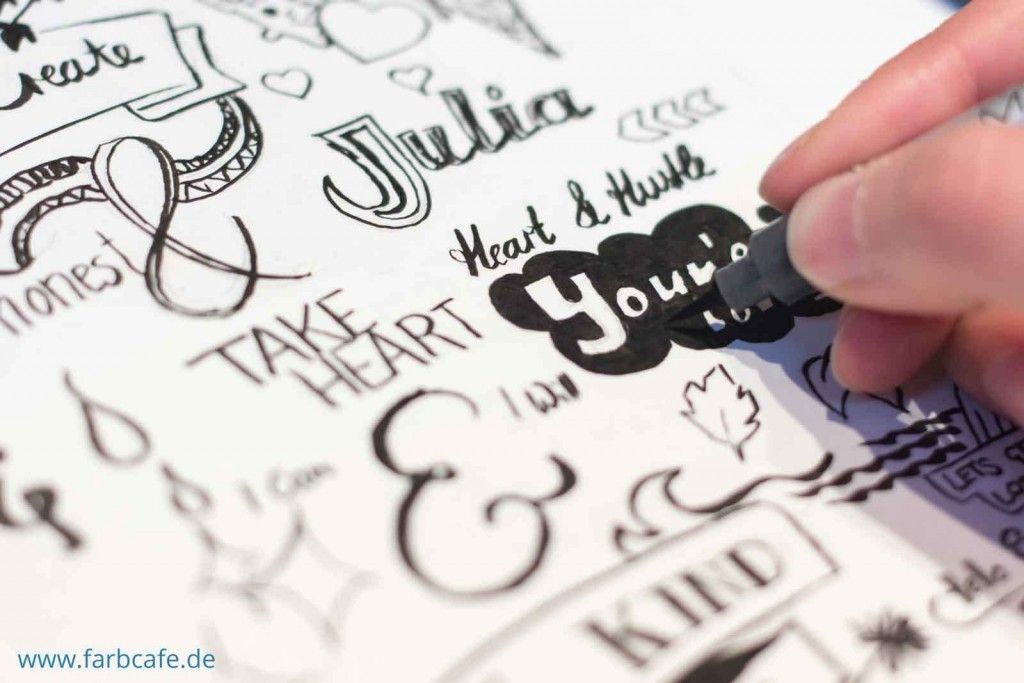 Create
Julia
Heart & Hustle
Honest
&
TAKE
HEART
You
I Will
&
I Can
LETS
KIND
www.farbcafe.de